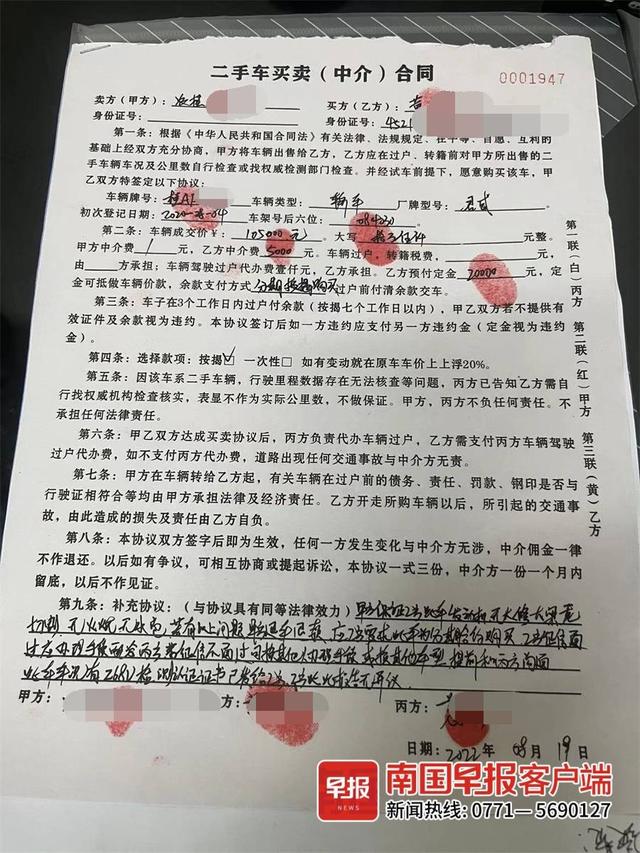 二手车买卖（中介）合同
0001947
卖方（甲方）：
买方（乙方）：
身份证号：
身份证号：4521
第一条：根据《中华人民共和国合同法》有关法律、法规规定、在平等、自愿、互利的
基础上经双方充分协商，甲方将车辆出售给乙方，乙方应在过户、转籍前对甲方所出售的二
手车辆车况及公里数自行检查或找权威检测部门检查。并经试车前提下，愿意购买该车，甲
乙双方特签定以下协议：
车辆牌号：桂A1 车辆类型：轿车 厂牌型号：君威
初次登记日期： 车架号后六位：084230
第二条：车辆成交价￥：105000元。大写 元整。
甲方中介费 元，乙方中介费5000元。车辆过户，转籍税费， 元，
由 方承担；车辆驾驶过户代办费壹仟元，乙方承担。乙方预付定金20000元，定
金可抵做车辆价款，余款支付方式 过户前付清余款交车。
第三条：车子在3个工作日内过户付余款（按揭七个工作日以内），甲乙双方若不提供有
效证件及余款视为违约。本协议签订后如一方违约应支付另一方违约金（定金视为违约
金）。
第四条：选择款项：按揭☑ 一次性□ 如有变动就在原车车价上上浮20%。
第五条：因该车系二手车辆，行驶里程数据存在无法核查等问题，丙方已告知乙方需自
行找权威机构检查核实，表显不作为实际公里数，不做保证。甲方，丙方不负任何责任。不
承担任何法律责任。
第六条：甲乙双方达成买卖协议后，丙方负责代办车辆过户，乙方需支付丙方车辆驾驶
过户代办费，如不支付丙方代办费，道路出现任何交通事故与中介方无责。
第七条：甲方在车辆转给乙方起，有关车辆在过户前的债务、责任、罚款、钢印是否与
行驶证相符合等均由甲方承担法律及经济责任。乙方开走所购车辆以后，所引起的交通事
故，由此造成的损失及责任由乙方自负。
第八条：本协议双方签字后即为生效，任何一方发生变化与中介方无涉，中介佣金一律
不作退还。以后如有争议，可相互协商或提起诉讼，本协议一式三份，中介方一份一个月内
留底，以后不作见证。
第九条：补充协议：（与协议具有同等法律效力）
甲方：
乙方：
丙方：
日期：2022年08月19日
第一联（白）丙方
第二联（红）甲方
第三联（黄）乙方
早报
NEWS
南国早报客户端
新闻热线：0771—5690127